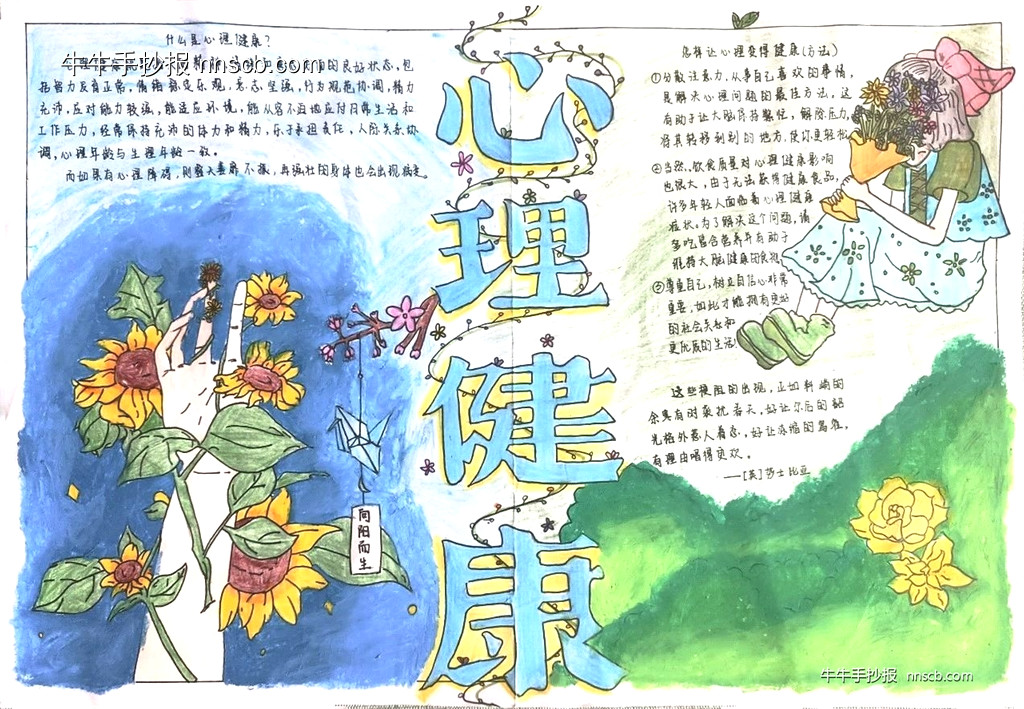 什么是心理健康?
牛牛手抄报 nnscb.com
的良好状态,包
括智力发育正常,情绪稳定乐观,意志坚强,行为规范协调,精力
充沛,应对能力较强,能适应环境,能从容不迫地应付日常生活和
工作压力,经常保持充沛的体力和精力,乐于承担责任,人际关系协
调,心理年龄与生理年龄一致。
而如果有心理障碍,则整天萎靡不振,再强壮的身体也会出现病变。
心理健康
向阳而生
怎样让心理变得健康(方法)
①分散注意力,从事自己喜欢的事情,
是解决心理问题的最佳方法,这
有助于让大脑保持繁忙,解除压力,
将其转移到别的地方,使你更轻松
②当然,饮食质量对心理健康影响
也很大,由于无法获得健康食品,
许多年轻人面临着心理健康
症状。为了解决这个问题,请
多吃富含营养并有助于
维持大脑健康的食物
③尊重自己,树立自信心非常
重要,如此才能拥有更好
的社会关系和
更优质的生活!
这些梗阻的出现,正如料峭的
余寒有时来扰春天,好让尔后的韶
光格外惹人眷恋,好让冻缩的鸟雀,
有理由唱得更欢。
——[英]莎士比亚
牛牛手抄报 nnscb.com